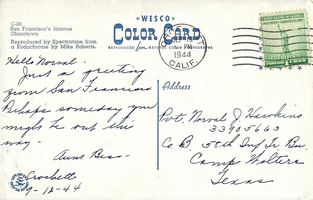 WESCO
COLOR CARD
C-20
San Francisco's famous
Chinatown
Reproduced by Spectratone from
a Kodachrome by Mike Roberts.
1944
CALIF.
Hello Norval -
Just a greeting
from San Francisco
Perhaps someday you
might be out this
way -
Aunt Bess -
Crockett
7-12-44
Address
Pvt. Norval J Hawkins
33905663
Co B. 58th Inf Tr Bn.
Camp Wolters
Texas